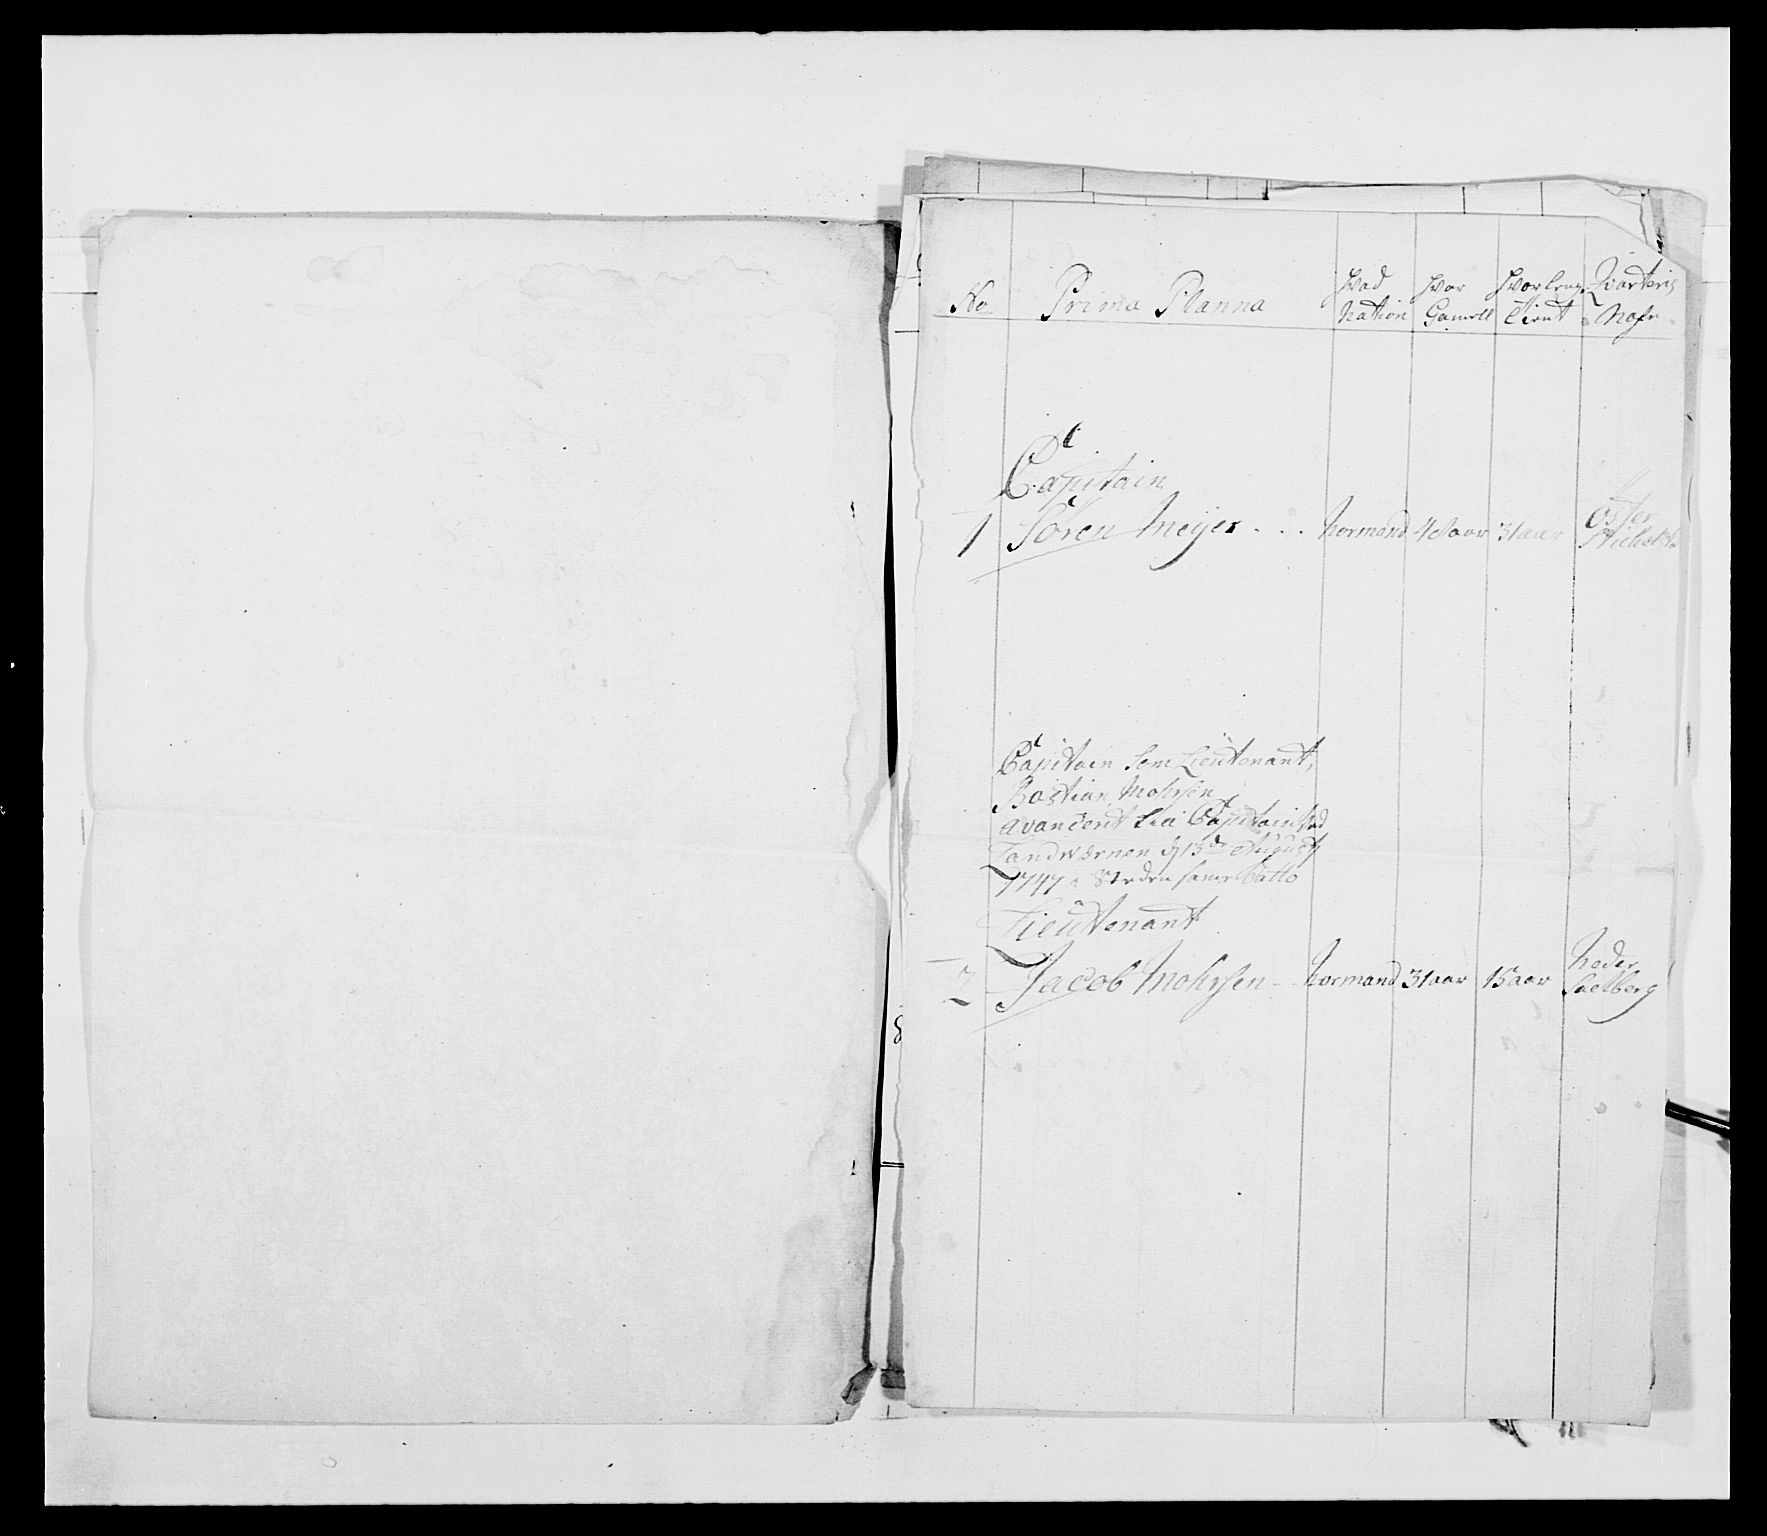 No Prima Planna Hvad Nation Hvor Gamell Hvor leng Tient Qvarteris Nafn
Capitain
1 Sören Meijer . . . Normand 4 aar 31 aar Öster
Capitain som Lieutenant,
Bastian Mohrsen
avancerit til Capitain ved
Landværnen d 13de Augusti
1747 Steden samme datto
Lieutenant
2 Jacob Mohrsen - Normand 31 aar 15 aar Neder Saelberg